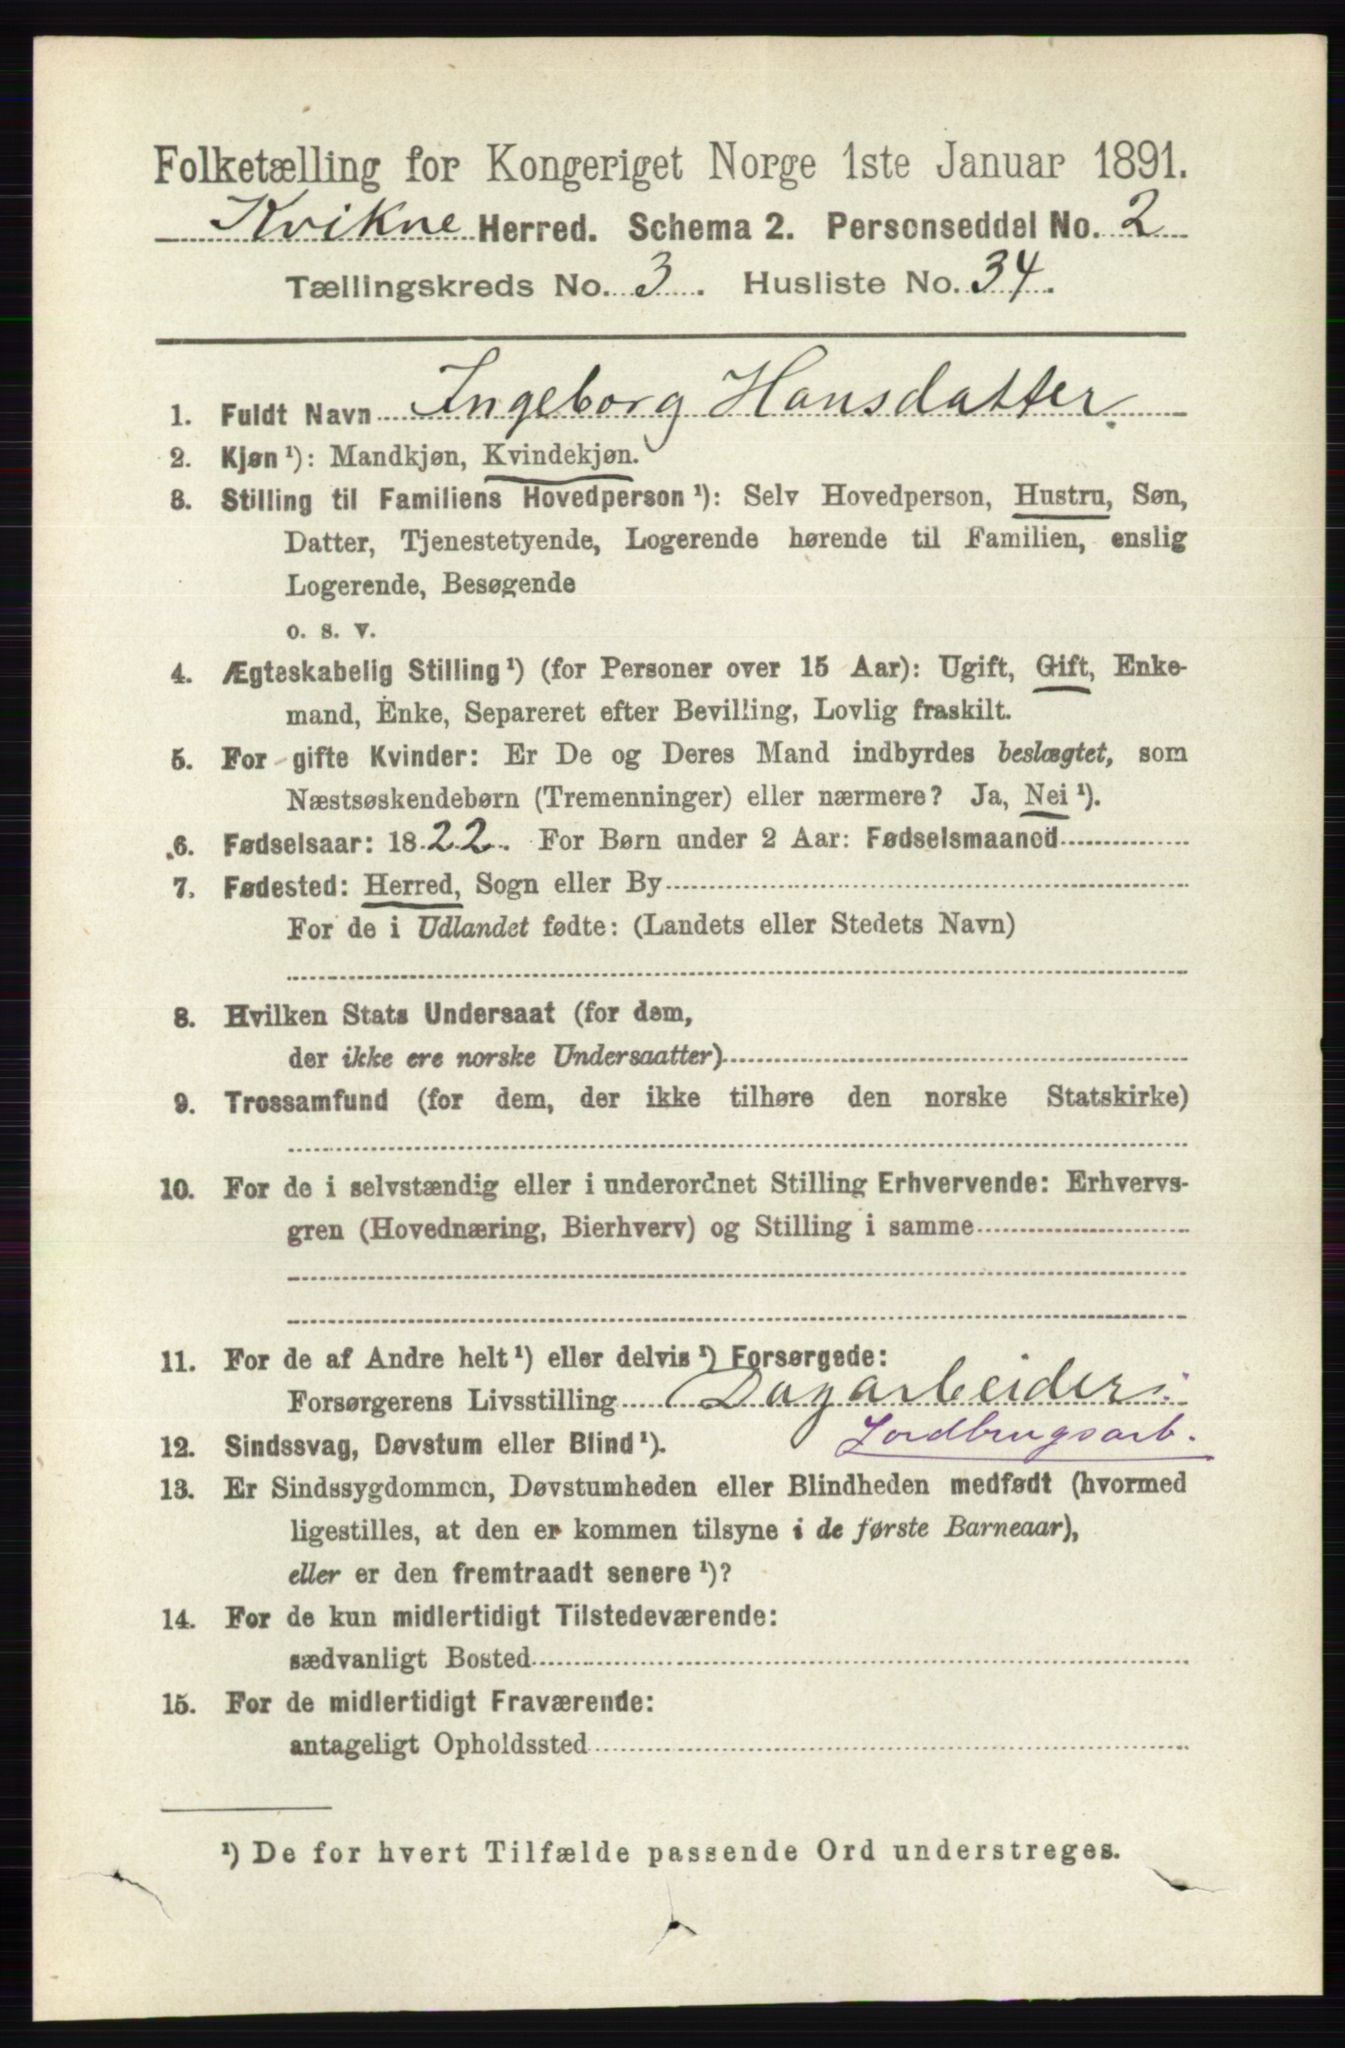 Folketælling for Kongeriget Norge 1ste Januar 1891.
Kvikne Herred. Schema 2. Personseddel No. 2
Tællingskreds No. 3. Husliste No. 34.
1. Fuldt Navn Ingeborg Hansdatter.
2. Kjøn¹): Mandkjøn, Kvindekjøn.
3. Stilling til Familiens Hovedperson¹): Selv Hovedperson, Hustru, Søn,
Datter, Tjenestetyende, Logerende hørende til Familien, enslig
Logerende, Besøgende
o. s. v.
4. Ægteskabelig Stilling¹) (for Personer over 15 Aar): Ugift, Gift, Enke-
mand, Enke, Separeret efter Bevilling, Lovlig fraskilt.
5. For gifte Kvinder: Er De og Deres Mand indbyrdes beslægtet, som
Næstsøskendebørn (Tremenninger) eller nærmere? Ja, Nei¹).
6. Fødselsaar: 1822. For Børn under 2 Aar: Fødselsmaaned
7. Fødested: Herred, Sogn eller By
For de i Udlandet fødte: (Landets eller Stedets Navn)
8. Hvilken Stats Undersaat (for dem,
der ikke ere norske Undersaatter)
9. Trossamfund (for dem, der ikke tilhøre den norske Statskirke)
10. For de i selvstændig eller i underordnet Stilling Erhvervende: Erhvervs-
gren (Hovednæring, Bierhverv) og Stilling i samme
11. For de af Andre helt¹) eller delvis¹) Forsørgede:
Forsørgerens Livsstilling Dagarbeider
Jordbrugsarb.
12. Sindssvag, Døvstum eller Blind¹).
13. Er Sindssygdommen, Døvstumheden eller Blindheden medfødt (hvormed
ligestilles, at den er kommen tilsyne i de første Barneaar),
eller er den fremtraadt senere¹)?
14. For de kun midlertidigt Tilstedeværende:
sædvanligt Bosted
15. For de midlertidigt Fraværende:
antageligt Opholdssted
¹) De for hvert Tilfælde passende Ord understreges.